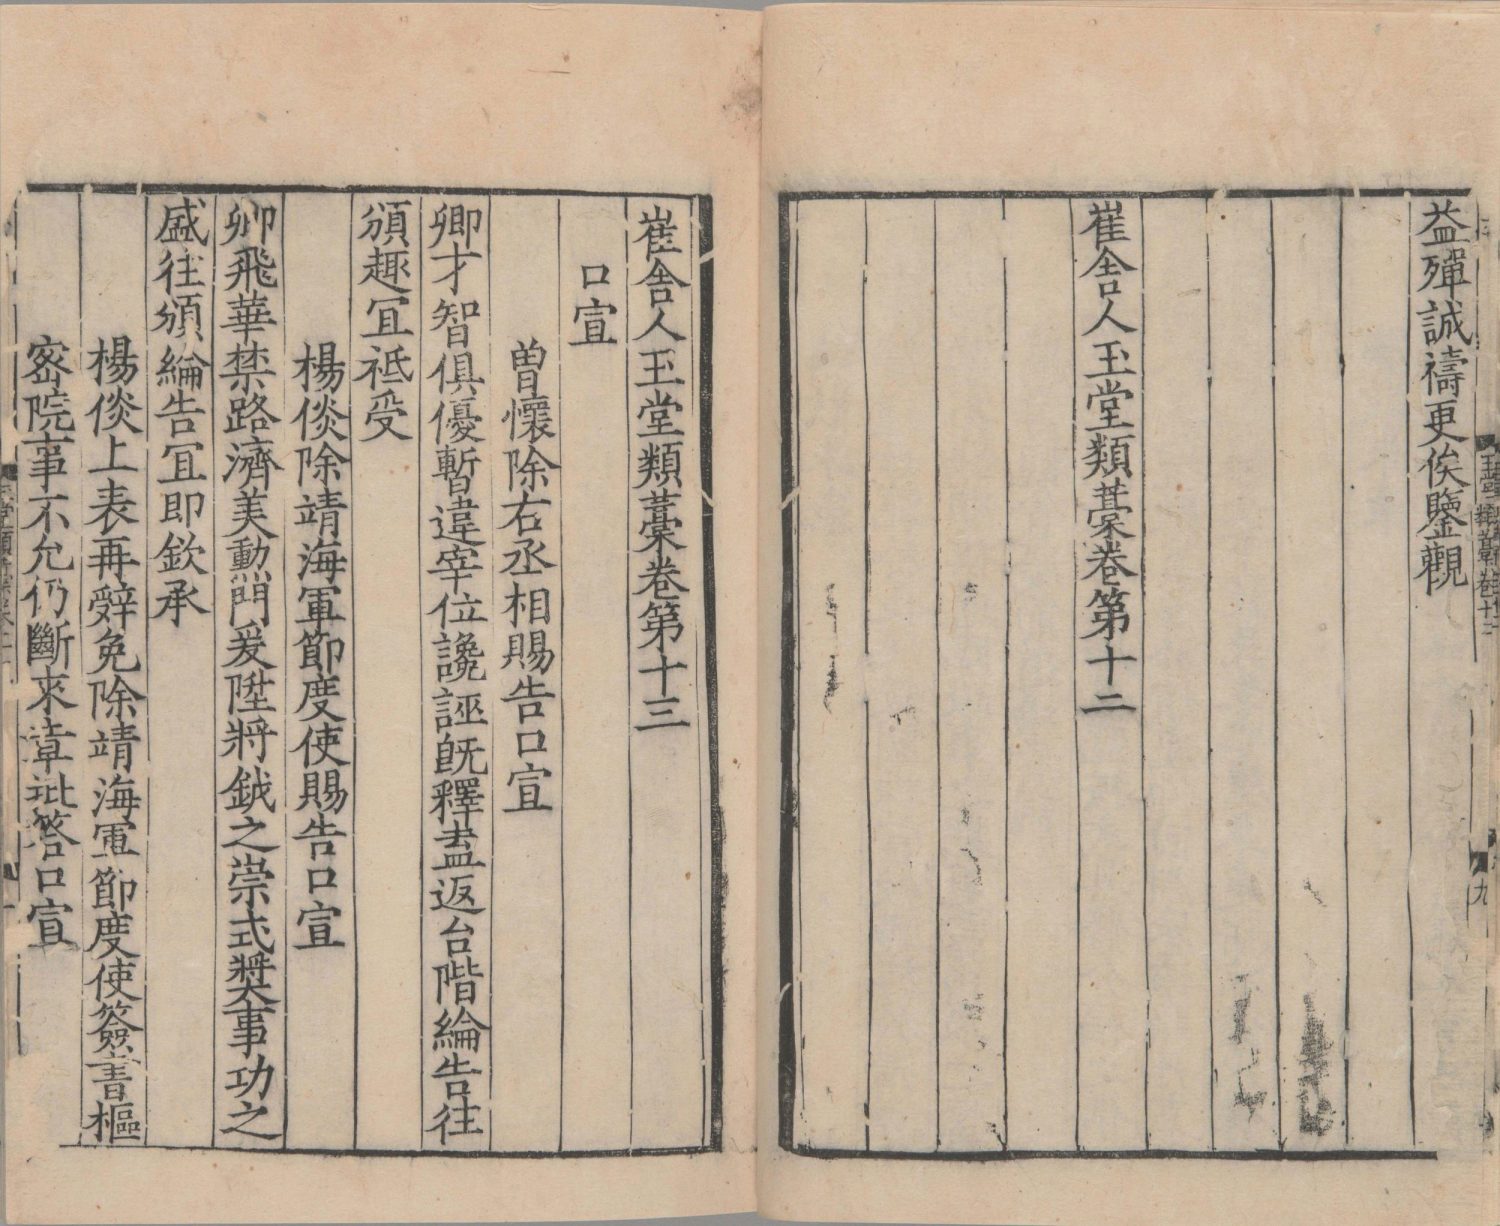 益殫誠禱更俟鑒觀
崔舍人玉堂類藁卷第十二
九
崔舍人玉堂類藁卷第十三
口宣
曽懷除右丞相賜告口宣
卿才智俱優暫違宰位讒誣旣釋盍返台階綸告往
頒趣冝祗受
楊倓除靖海軍節度使賜告口宣
卿飛華禁路濟美勳門爰陞將鉞之崇式奬事功之
盛往頒綸告冝即欽承
楊倓上表再辭免除靖海軍節度使簽書樞
密院事不允仍斷來章批答口宣